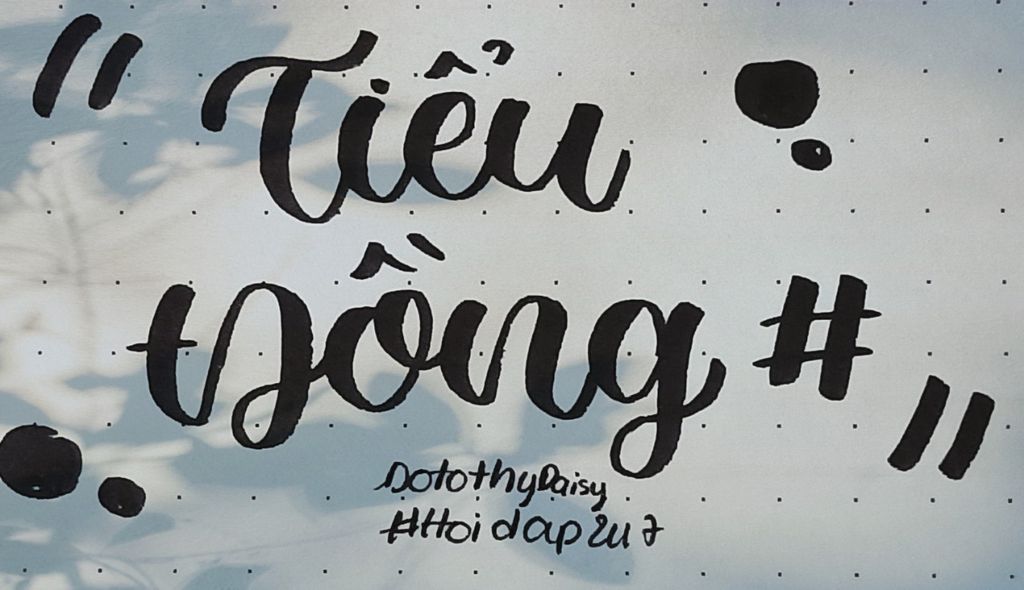 " Tiểu
Đồng # "
DotothyDaisy
#Hoidap247